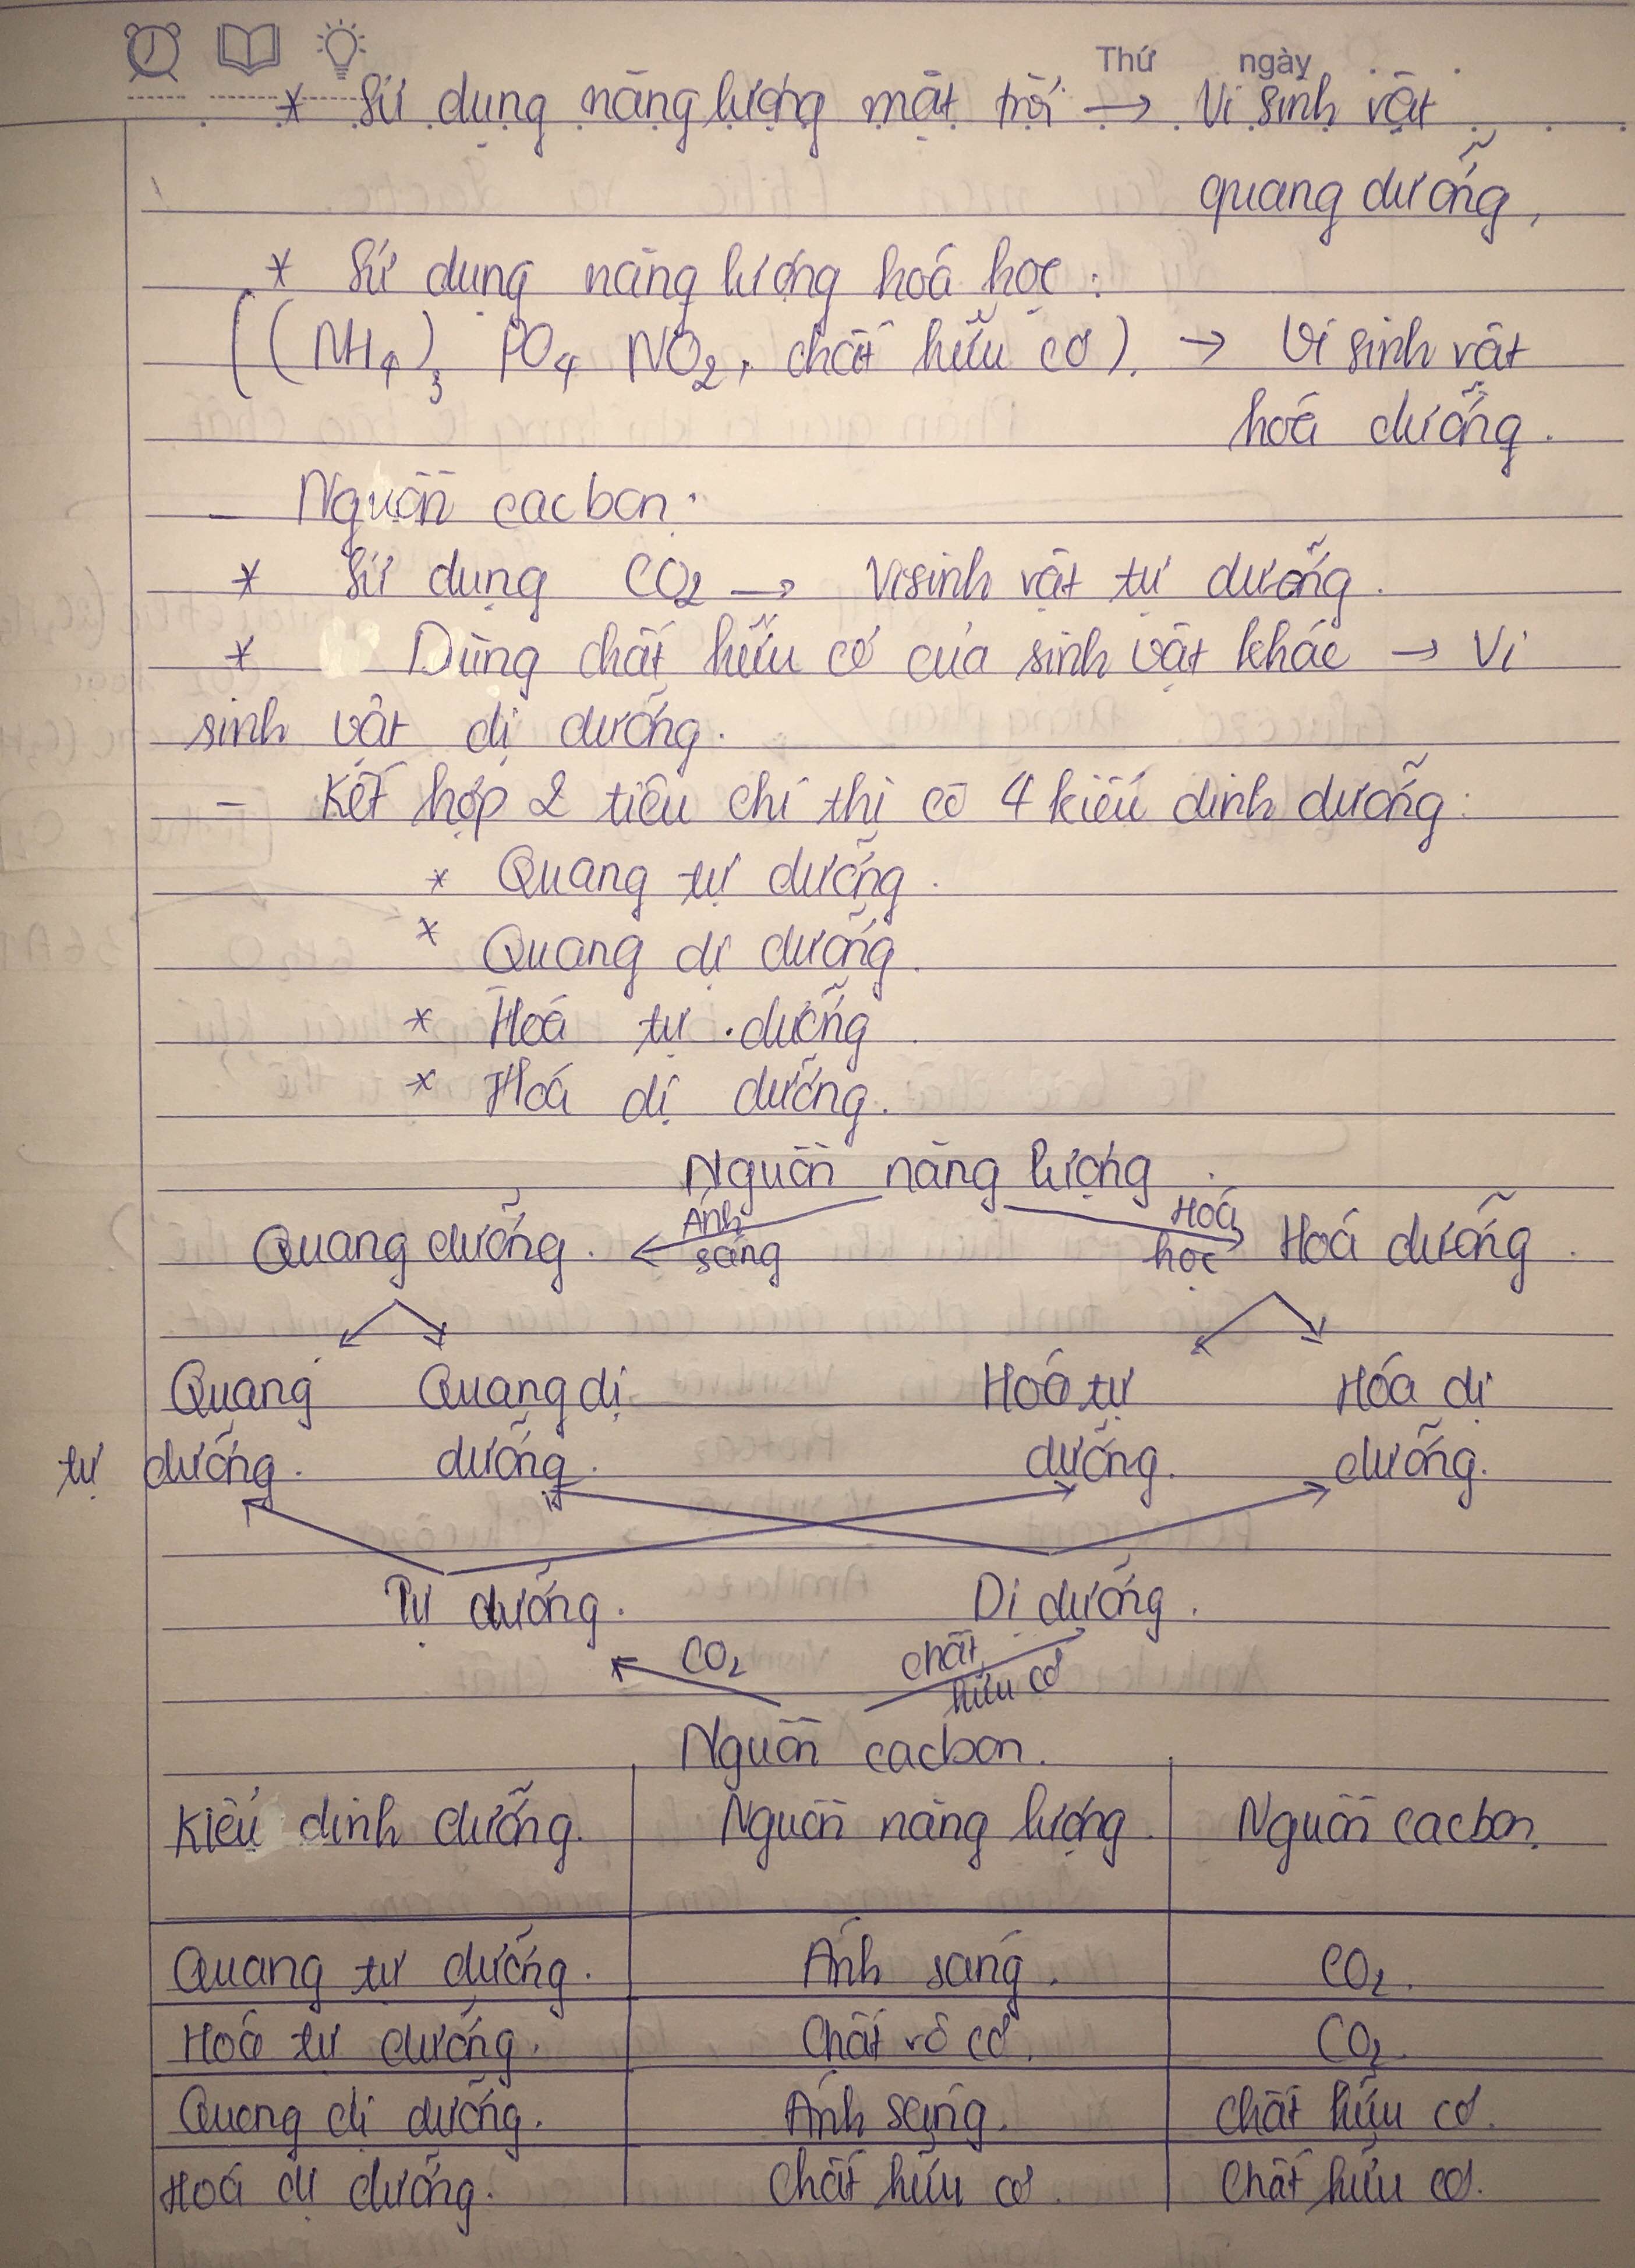 Thứ ngày
* Sử dụng năng lượng mặt trời → Vi sinh vật
quang dưỡng,
* Sử dụng năng lượng hoá học:
((NH4)3 PO4 NO2, chất hữu cơ). → Vi sinh vật
hoá dưỡng.
- Nguồn cacbon:
* Sử dụng CO2 → Vi sinh vật tự dưỡng.
* Dùng chất hữu cơ của sinh vật khác → Vi
sinh vật dị dưỡng.
- Kết hợp 2 tiêu chí thì có 4 kiểu dinh dưỡng:
* Quang tự dưỡng.
* Quang dị dưỡng.
* Hoá tự dưỡng.
* Hoá dị dưỡng.
Nguồn năng lượng.
Quang dưỡng. ← Ánh sáng Hoá học → Hoá dưỡng.
Quang Quang dị Hoá tự Hóa dị
tự dưỡng. dưỡng. dưỡng. dưỡng.
Tự dưỡng. Dị dưỡng.
CO2 chất hữu cơ
Nguồn cacbon.
Kiểu dinh dưỡng. Nguồn năng lượng. Nguồn cacbon.
Quang tự dưỡng. Ánh sáng. CO2.
Hoá tự dưỡng. Chất vô cơ. CO2.
Quang dị dưỡng. Ánh sáng. Chất hữu cơ.
Hoá dị dưỡng. Chất hữu cơ. Chất hữu cơ.